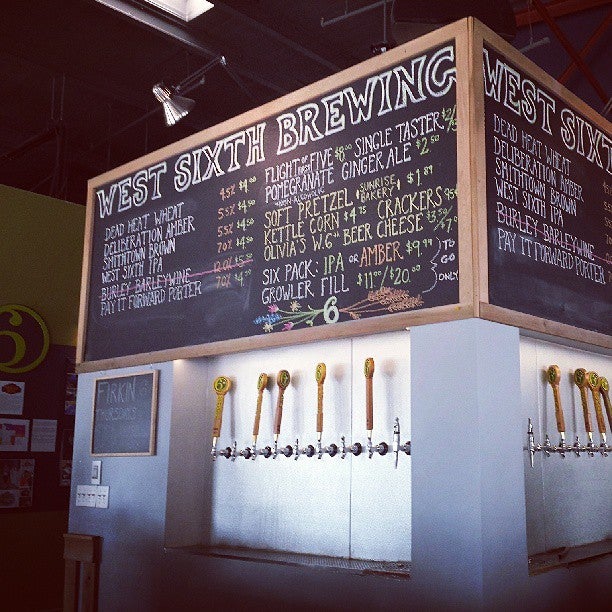 WEST SIXTH BREWING
DEAD MEAT WHEAT 4.5% $4.00
DELIBERATION AMBER 5.5% $4.50
SMITHTOWN BROWN 5.5% $4.50
WEST SIXTH IPA 7.0% $4.50
BURLEY BARLEYWINE 12.0%
PAY IT FORWARD PORTER 7.0%
FLIGHT OF FIVE $8.00 SINGLE TASTER
POMEGRANATE GINGER ALE $2.50
NON-ALCOHOLIC
SOFT PRETZEL SUNRISE BAKERY $1.89
KETTLE CORN $4.75 CRACKERS 95¢
OLIVIA'S W.6TH BEER CHEESE $3.50/$7.00
SIX PACK: IPA OR AMBER $9.99
GROWLER FILL $11.00/$20.00
TO GO ONLY
6
WEST SIXT
DEAD MEAT WHEAT
DELIBERATION AMBER
SMITHTOWN BROWN
WEST SIXTH IPA
BURLEY BARLEYWINE
PAY IT FORWARD PORTER
6
FIRKIN
THURSDAYS